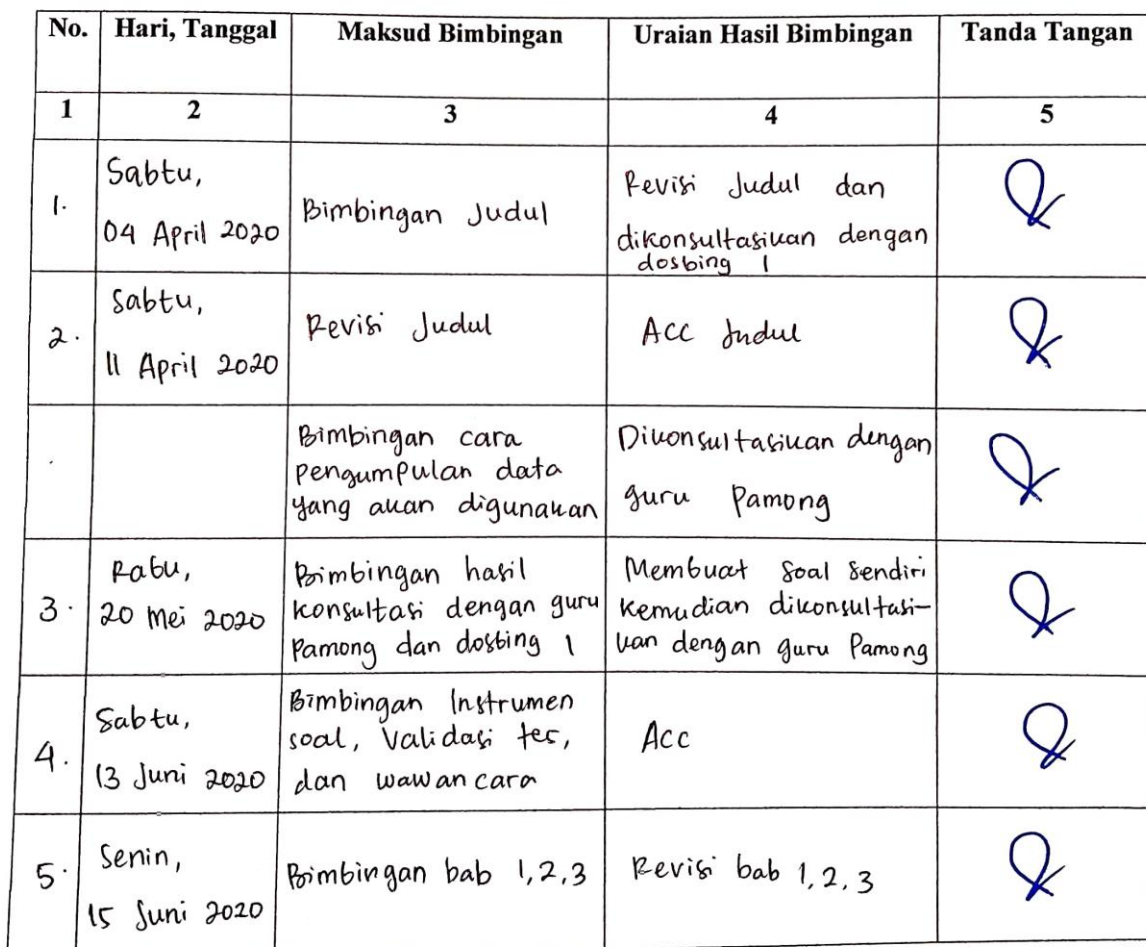 No. Hari, Tanggal Maksud Bimbingan Uraian Hasil Bimbingan Tanda Tangan
1 2 3 4 5
1. Sabtu,
04 April 2020
Bimbingan Judul
Revisi Judul dan
dikonsultasikan dengan
dosbing 1
2. Sabtu,
11 April 2020
Revisi Judul
ACC Judul
Bimbingan cara
pengumpulan data
yang akan digunakan
Dikonsultasikan dengan
guru Pamong
3. Rabu,
20 Mei 2020
Bimbingan hasil
konsultasi dengan guru
Pamong dan dosbing 1
Membuat soal sendiri
kemudian dikonsultasi-
kan dengan guru Pamong
4. Sabtu,
13 Juni 2020
Bimbingan Instrumen
soal, Validasi tes,
dan wawancara
Acc
5. Senin,
15 Juni 2020
Bimbingan bab 1, 2, 3
Revisi bab 1, 2, 3